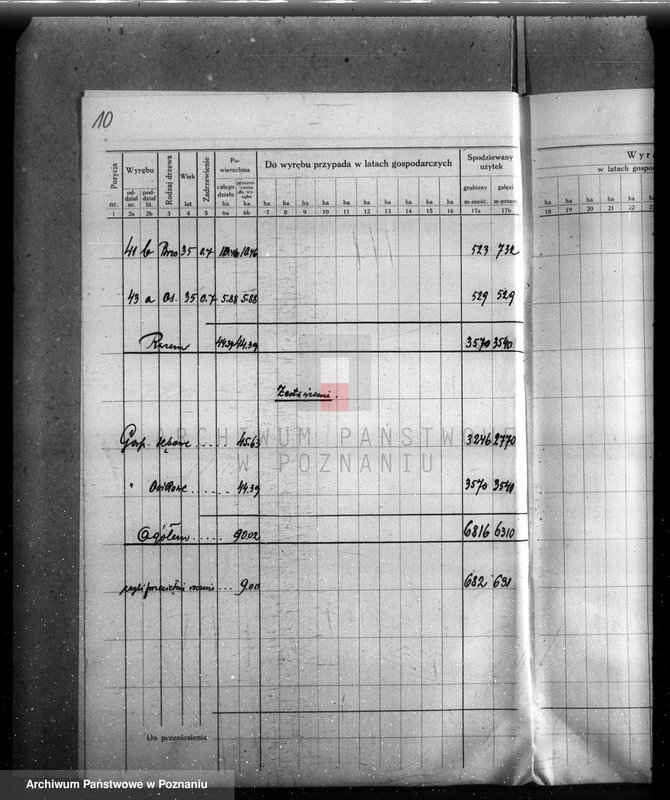 10
Pozycja Wyrębu Rodzaj drzewa Wiek Zadrzewienie Powierzchnia Do wyrębu przypada w latach gospodarczych Spodziewany użytek
nr. oddział nr. poddział lit. lat całego działu ha ha ha ha ha ha ha ha ha ha ha ha grubizny m-sześć. gałęzi m-przest.
1 2a 2b 3 4 5 6a 6b 7 8 9 10 11 12 13 14 15 16 17a 17b
w latach gospod
ha ha ha ha
18 19 20 21 22
41 b Brzo 35 0.7 10.46 10.46 523 732
43 a Os. 35 0.7 5.88 5.88 529 529
Razem 44.39 44.39 3570 3540
Zestawienie.
Gosp. zębowe .... 45.63 3246 2770
" Osikowe ...... 44.39 3570 3540
Ogółem ..... 90.02 6816 6310
czyli przeciętnie rocznie ... 9.00 682 631
Do przeniesienia
ARCHIWUM PAŃSTWOWE
W POZNANIU
Archiwum Państwowe w Poznaniu